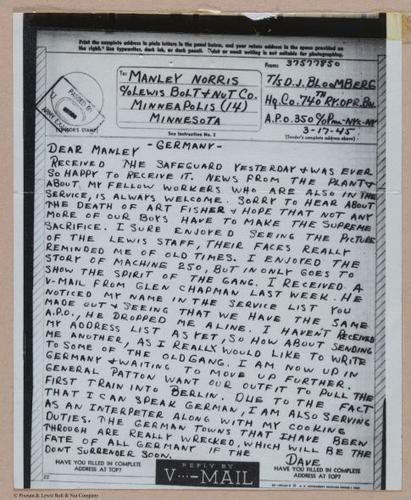 Print the complete address in plain letters in the panel below, and your return address in the space provided on
the right. Use typewriter, dark ink, or dark pencil. Faint or small writing is not suitable for photographing.
PASSED BY
ARMY EXAMINER
(CENSOR'S STAMP)
To:
MANLEY NORRIS
℅ LEWIS BOLT & NUT CO.
MINNEAPOLIS (14)
MINNESOTA
See Instruction No. 2
From:
37577850
T/5 D.J. BLOOMBERG
HQ. CO. 740TH RY. OPR. BN.
A.P.O. 350 ℅ P.M.-NYC-NY
3-17-45
(Sender's complete address above)
DEAR MANLEY -GERMANY-
RECEIVED THE SAFEGUARD YESTERDAY & WAS EVER
SO HAPPY TO RECEIVE IT. NEWS FROM THE PLANT &
ABOUT MY FELLOW WORKERS WHO ARE ALSO IN THE
SERVICE, IS ALWAYS WELCOME. SORRY TO HEAR ABOUT
THE DEATH OF ART FISHER & HOPE THAT NOT ANY
MORE OF OUR BOYS HAVE TO MAKE THE SUPREME
SACRIFICE. I SURE ENJOYED SEEING THE PICTURE
OF THE LEWIS STAFF, THEIR FACES REALLY
REMINDED ME OF OLD TIMES. I ENJOYED THE
STORY OF MACHINE 250, BUT IN ONLY GOES TO
SHOW THE SPIRIT OF THE GANG. I RECEIVED A
V-MAIL FROM GLEN CHAPMAN LAST WEEK. HE
NOTICED MY NAME IN THE SERVICE LIST YOU
MADE OUT & SEEING THAT WE HAVE THE SAME
A.P.O., HE DROPPED ME ALINE. I HAVENT RECEIVED
MY ADDRESS LIST AS YET, SO HOW ABOUT SENDING
ME ANOTHER, AS I REALLY WOULD LIKE TO WRITE
TO SOME OF THE OLD GANG. I AM NOW UP IN
GERMANY & WAITING TO MOVE UP FURTHER.
GENERAL PATTON WANT OUR OUTFIT TO PULL THE
FIRST TRAIN INTO BERLIN. DUE TO THE FACT
THAT I CAN SPEAK GERMAN, I AM ALSO SERVING
AS AN INTERPETER ALONG WITH MY COOKING
DUTIES. THE GERMAN TOWNS THAT I HAVE BEEN
THROUGH ARE REALLY WRECKED, WHICH WILL BE THE
FATE OF ALL GERMANY IF THE
DONT SURRENDER SOON. DAVE
HAVE YOU FILLED IN COMPLETE
ADDRESS AT TOP?
REPLY BY
V···–MAIL
HAVE YOU FILLED IN COMPLETE
ADDRESS AT TOP?